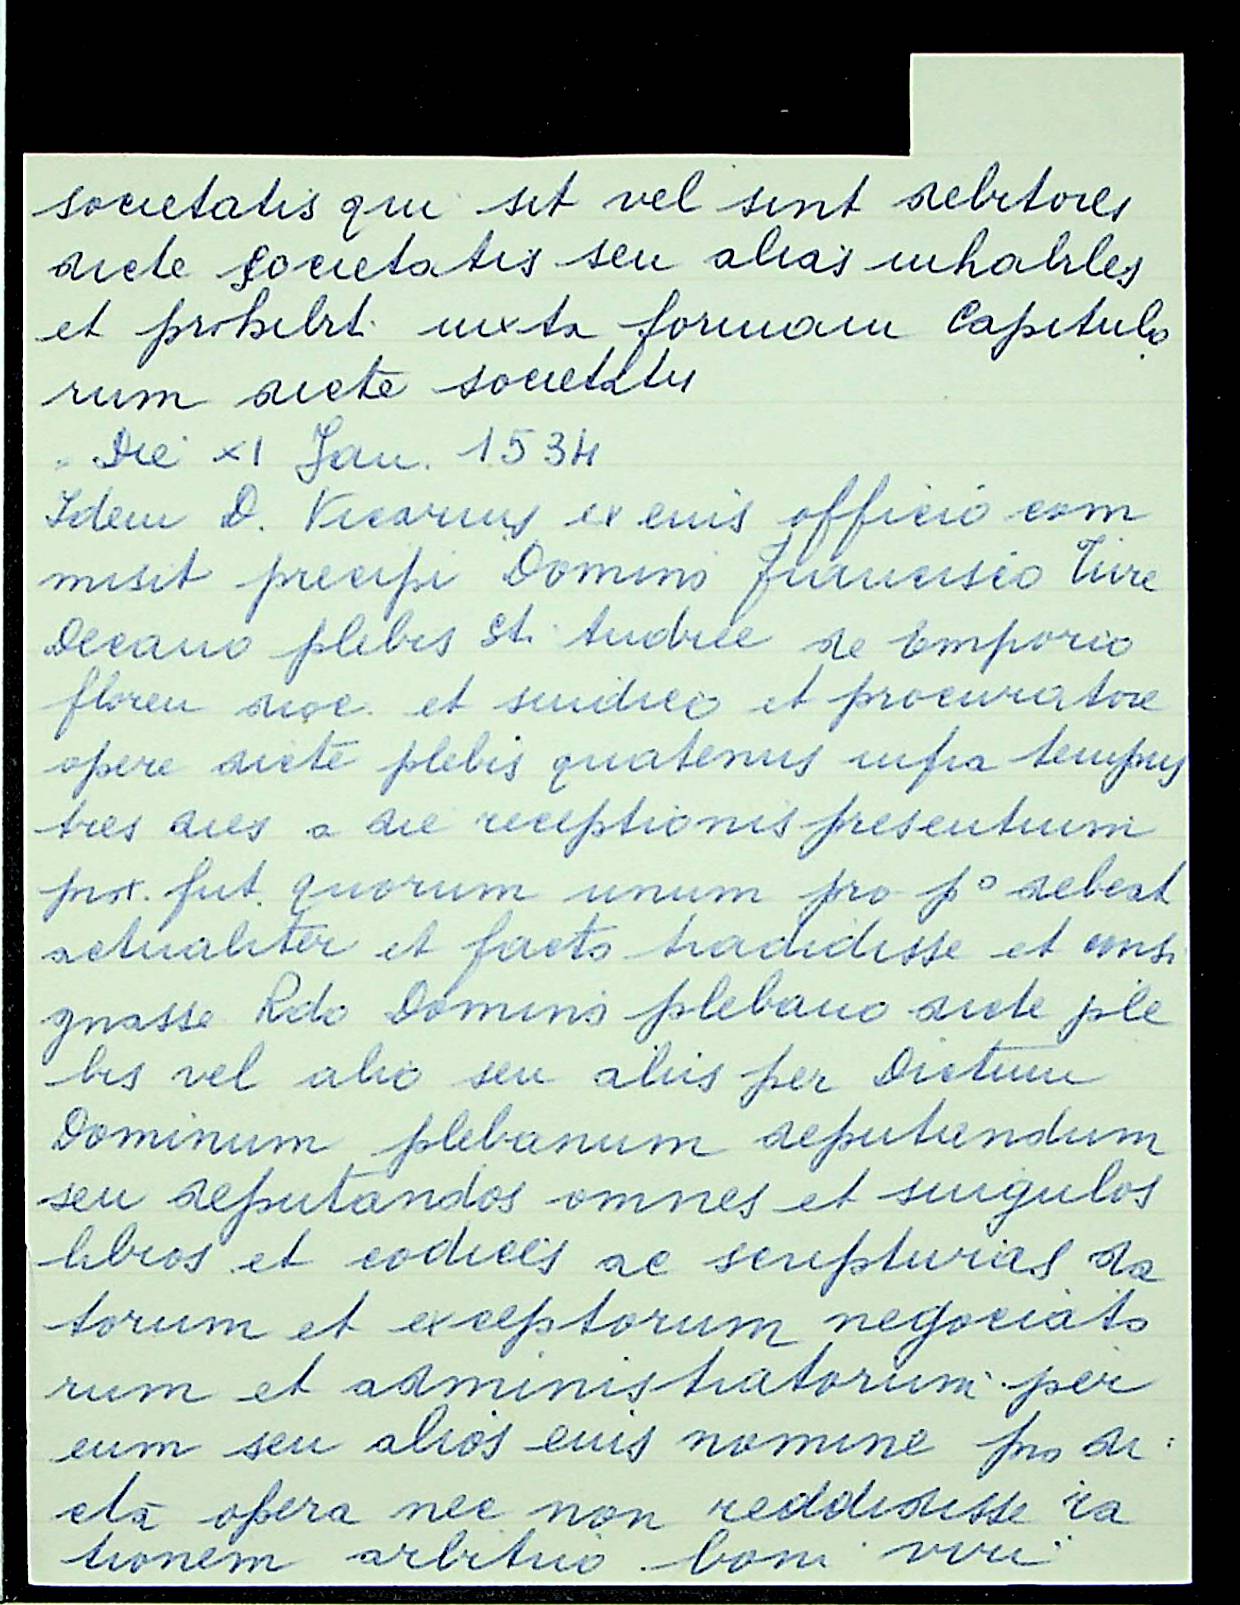 societatis qui sit vel sint debitores
dicte societatis seu alias inhabiles
et prohibit. iuxta formam Capitulo
rum dicte societatis
Die XI Jan. 1534
Idem D. Vicarius ex eius officio com
misit precipi Domino Francisco
Decano plebis St. Andree de Emporio
floren dioc. et sindico et procuratore
opere dicte plebis quatenus infra tempus
tres dies a die receptionis presentium
prox. fut. quorum unum pro p° debeat
actualiter et facto tradidisse et consi
gnasse Rdo Domino plebano dicte ple
bis vel alio seu aliis per Dictum
Dominum plebanum deputandum
seu deputandos omnes et singulos
libros et codices ac scripturas da
torum et exceptorum negociato
rum et administratorum per
eum seu alios eius nomine pro di
cta opera nec non reddidisse ra
tionem arbitrio boni viri